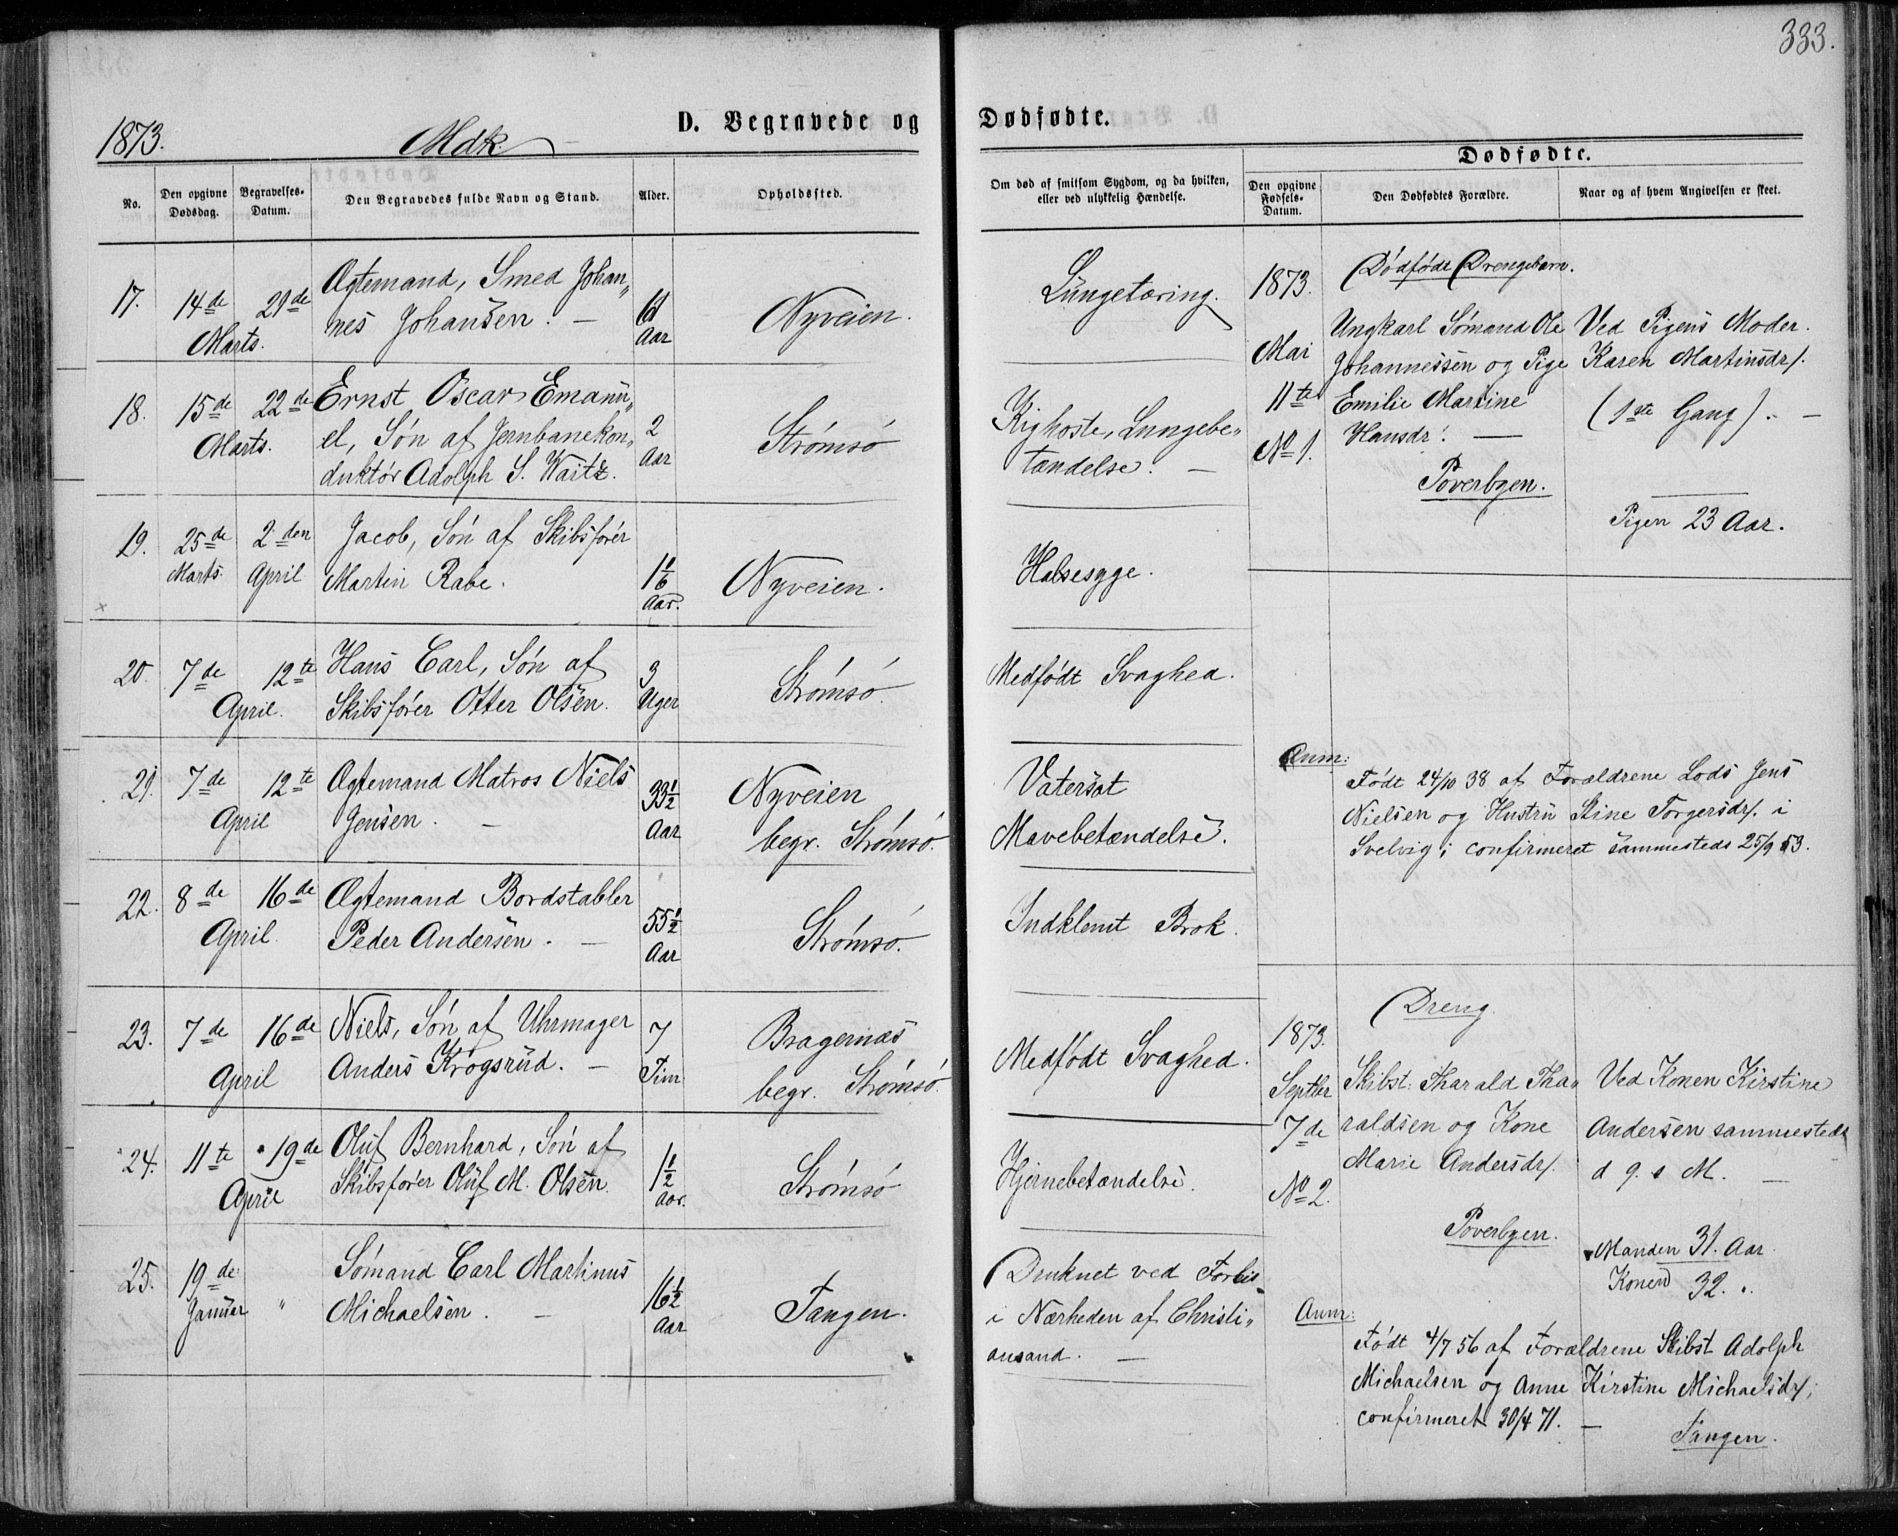 333.
1873.
Mdk
D. Begravede og Dødfødte.
No.
Den opgivne Dødsdag.
Begravelses-Datum.
Den Begravedes fulde Navn og Stand.
Alder.
Opholdssted.
Om død af smitsom Sygdom, og da hvilken,
eller ved ulykkelig Hændelse.
Dødfødte.
Den opgivne Fødsels-Datum.
Den Dødfødtes Forældre.
Naar og af hvem Angivelsen er skeet.
17. 14de 21de Ægtemand, Smed Johan„
Marts. nes Johansen. — 61 Aar Nyveien.
Lungetæring.
18. 15de 22de Ernst Oscar Emanu„
Marts. el, Søn af Jernbanekon„ 2 Aar Strømsø
duktør Adolph S. Waitz.
Kighoste, Lungebe„
tændelse. —
19. 25de 2den Jacob, Søn af Skibsfører
Marts. April Martin Rabe. 1 1/6 Aar. Nyveien.
Halsesyge.
20. 7de 12te Hans Carl, Søn af
April. Skibsfører Otter Olsen. 3 Uger Strømsø.
Medfødt Svaghed.
21. 7de 12te Ægtemand Matros Niels
April Jensen. — 33½ Aar Nyveien
begr. Strømsø.
Vatersot
Mavebetændelse.
22. 8de 16de Ægtemand Bordstabler
April. Peder Andersen. — 55½ Aar Strømsø.
Indklemt Brok.
23. 7de 16de Niels, Søn af Uhrmager
April Anders Krogsrud. — 7 Tim Bragernæs
begr. Strømsø.
Medfødt Svaghed.
24. 11te 19de Oluf Bernhard, Søn af
April Skibsfører Oluf M. Olsen. 1½ Aar. Strømsø
Hjernebetændelse.
25. 19de Sømand Carl Martinus
Januar " Michaelsen. — 16½ Aar Tangen.
Druknet ved Forlis
i Nærheden af Christi„
ansand. —
1873.
Mai
11te
No 1.
Dødfødt Drengebarn.
Ungkarl Sømand Ole
Johannessen og Pige
Emilie Martine
Hansdr. —
Toverbyen.
Ved Pigens Moder
Karen Martinsdr.
(1ste Gang). —
Pigen 23 Aar.
Anm:
Født 24/10 38 af Forældrene Lods Jens
Nielsen og Hustru Stine Torgersdr. i
Svelvig; confirmeret sammesteds 25/9 53.
1873.
Septbr
7de
No 2.
Dreng.
Skibst. Tharald Tha„
raldsen og Kone
Marie Andersdr.
Toverbyen.
Ved Konen Kirstine
Andersen sammesteds
d 9. s M. —
Manden 31. Aar.
Konen 32. "
Anm:
Født 4/7 56 af Forældrene Skibst Adolph
Michaelsen og Anne Kirstine Michaelsdr.;
confirmeret 30/4 71. —
Tangen.